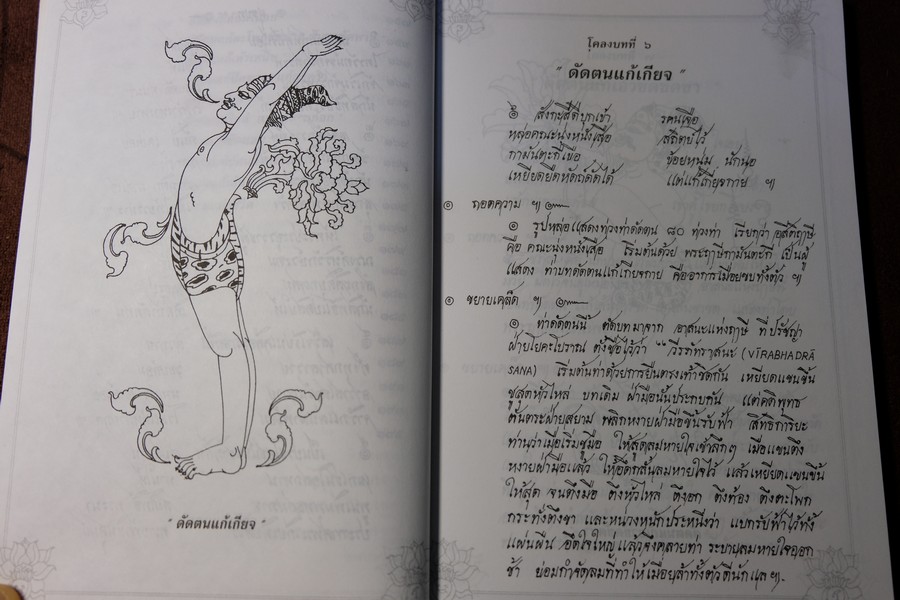 " ดัดตนแก้เกียจ "
โคลงบทที่ ๖
" ดัดตนแก้เกียจ "
๏ สังกะสีดีบุกเข้า รคนเจือ
หล่อคณะนุ่งหนังเสือ สถิตย์ไว้
กามันตะกี่เขือ ข้อยหนุ่ม นักนอ
เหยียดยืดหัดถ์ดัดได้ แต่แก้เกียจกาย ฯ
๏ ถอดความ ฯ
๑ รูปหล่อแสดงท่วงท่าดัดตน ๘๐ ท่วงท่า เรียกว่า อสีตฤาษี
คือ คณะนุ่งหนังเสือ เริ่มต้นด้วย พระฤาษีกามันตะกี เป็นผู้
แสดง ท่าบทดัดตนแก้เกียจกาย คืออาการเมื่อยขบทั้งตัว ฯ
๏ ขยายเคล็ด ฯ
๑ ท่าดัดตนนี้ ดัดบทมาจาก อาสนะแห่งฤาษี ที่ปรัชญา
ฝ่ายโยคะโบราณ ตั้งชื่อไว้ว่า " วีรภัทราสนะ (VĪRABHADRĀ
SANA) เริ่มต้นท่าด้วยการยืนตรงเท้าชิดกัน เหยียดแขนขึ้น
ชูสุดหัวไหล่ บทเดิม ฝ่ามือนั้นประกบกัน แต่คติพุทธ
ตันตระฝ่ายสยาม พลิกหงายฝ่ามือขึ้นรับฟ้า สิทธิการิยะ
ท่านว่าเมื่อเริ่มชูมือ ให้สูดลมหายใจเข้าลึกๆ เมื่อแขนตึง
หงายฝ่ามือแล้ว ให้อึดกลั้นลมหายใจไว้ แล้วเหยียดแขนขึ้น
ให้สุด จนตึงมือ ตึงหัวไหล่ ตึงอก ตึงท้อง ตึงตะโพก
กระทั่งตึงขา และหน่วงหนักประหนึ่งว่า แบกรับฟ้าไว้ทั้ง
แผ่นผืน อึดใจใหญ่ แล้วจึงคลายท่า ระบายลมหายใจออก
ช้า ย่อมกำจัดลมที่ทำให้เมื่อยล้าทั้งตัวดีนักแล ฯ